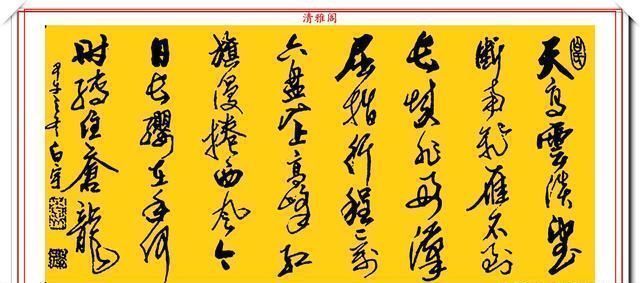 清雅阁
天高雲淡望
断南飛雁不到
长城非好漢
屈指行程二萬
六盤山上高峰红
旗漫捲西风今
日长缨在手何
時缚住蒼龍
甲午